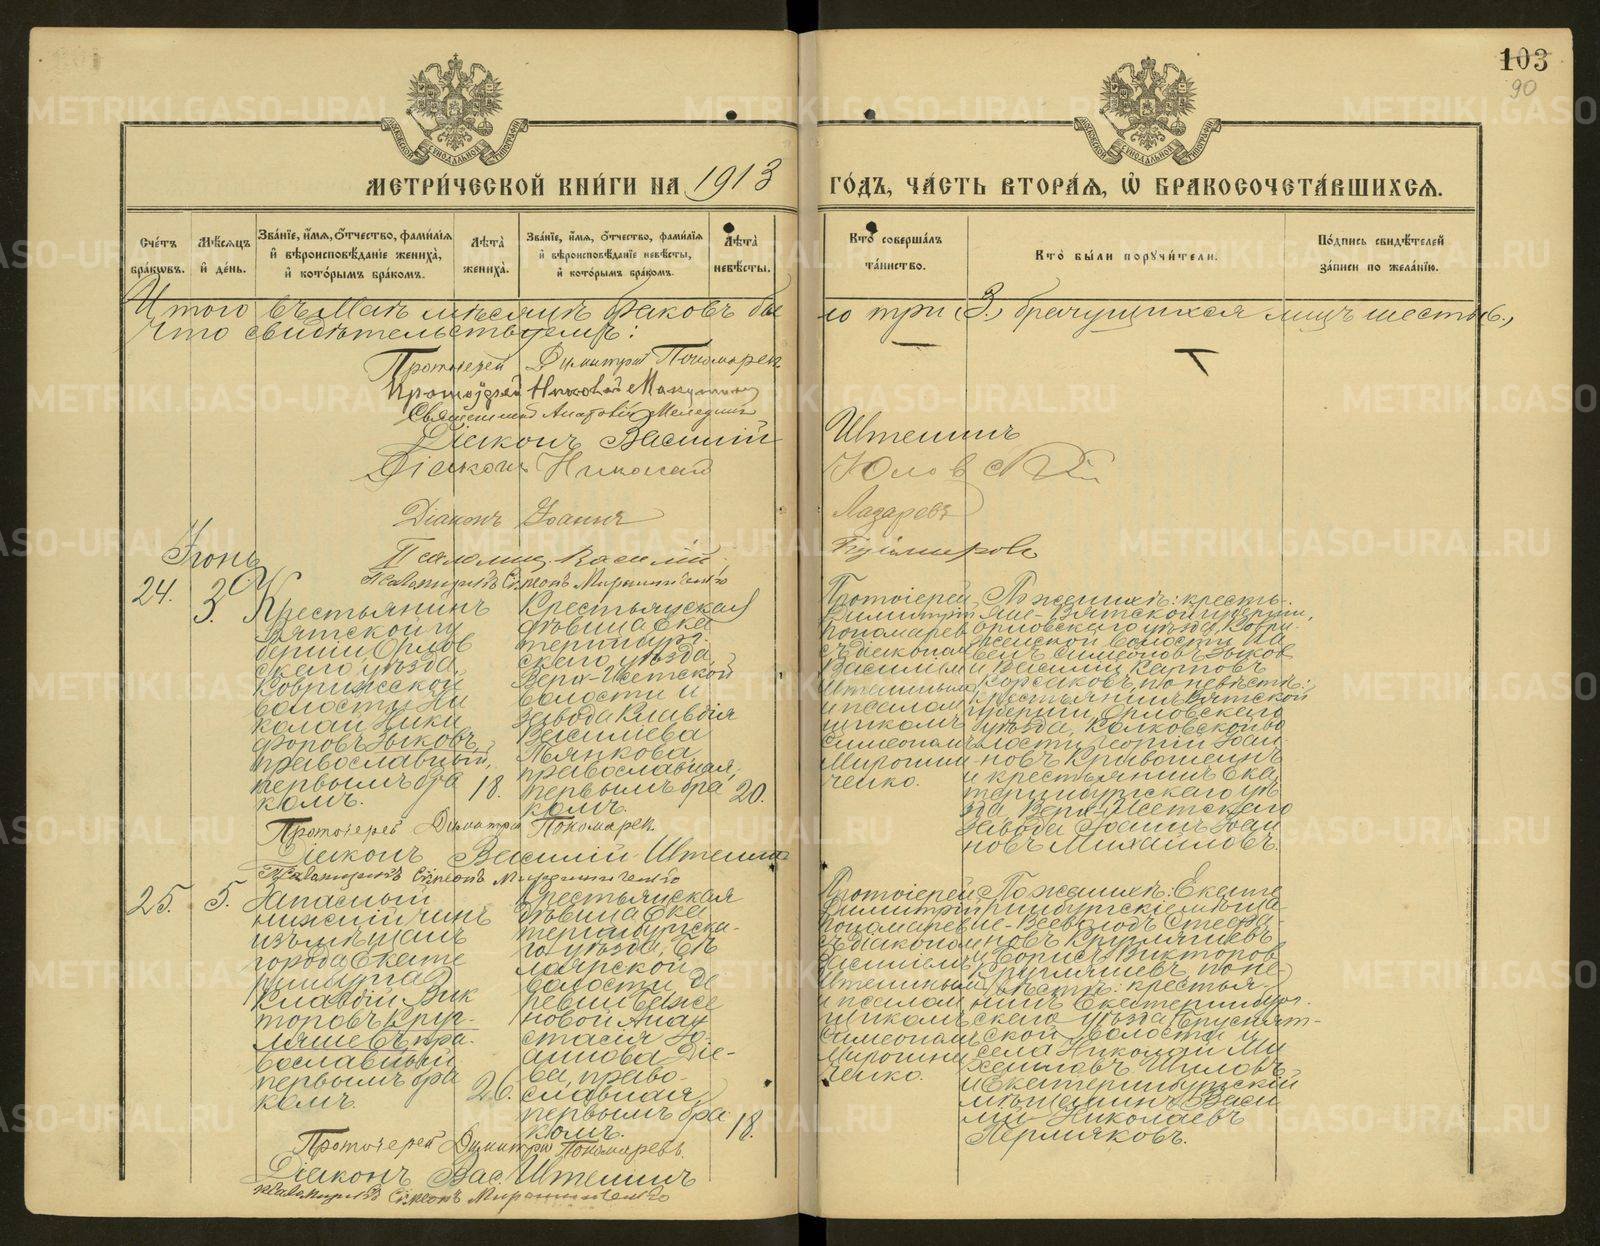 103
90
МЕТРИ́ЧЕСКОЙ КНИ́ГИ НА 1913 ГО́ДЪ, ЧА́СТЬ ВТОРА́Я, Ѽ БРАКОСОЧЕТА́ВШИХСЯ.
Сче́тъ бра́ковъ.
Мѣ́сяцъ и҆ де́нь.
Зва́нїе, и҆́мя, ѻ҆́тчество, фами́лїя и҆ вѣроисповѣ́данїе жениха̀, и҆ кото́рымъ бра́комъ.
Лѣта̀ жениха̀.
Зва́нїе, и҆́мя, ѻ҆́тчество, фами́лїя и҆ вѣроисповѣ́данїе невѣ́сты, и҆ кото́рымъ бра́комъ.
Лѣта̀ невѣ́сты.
Кто̀ соверша́лъ та́инство.
Кто̀ бы́ли поручи́тели.
По́дпись свидѣ́телей за́писи по жела́нїю.
Итого въ Маѣ мѣсяцѣ браковъ было три (3.), брачущихся лицъ шесть (6.),
что свидѣтельствуемъ:
Протоіерей Димитрій Пономарев
Протоіерей Николай
Священникъ Анатолій
Діаконъ Василій Штешинъ
Діаконъ Николай Юловскій
Діаконъ Іоаннъ Лазаревъ
Псаломщ. Василій
Псаломщикъ Симеонъ Мирошниченко
Іюнь
24.
3.
Крестьянинъ
Вятской гу
берніи Орлов
скаго уѣзда,
Коврижской
волости Ни
колай Ники
форовъ Зыковъ,
православный,
первымъ бра
комъ.
18.
Крестьянская
дѣвица Ека
теринбург.
скаго уѣзда,
Верх-Исетской
волости и
завода Клавдія
Васильева
Пьянкова,
православная,
первымъ бра
комъ.
20.
Протоіерей
Димитрій
Пономарев
съ діакономъ
Василіемъ
Штешинымъ
и псалом
щикомъ
Симеономъ
Мирошни
ченко.
По женихѣ: кресть-
яне Вятской губерніи,
Орловскаго уѣзда, Коври-
жской волости Па
велъ Симеоновъ Зыковъ
и Василій Карповъ
Корсаковъ, по невѣстѣ:
крестьянинъ Вятской
губерніи, Орловскаго
уѣзда, во
лости Георгій Іоан
новъ Кривошеинъ
и крестьянинъ Ека
теринбургскаго уѣ
зда Верх-Исетскаго
завода Іоаннъ Іоан
новъ Михайловъ.
Протоіерей Димитрій Пономарев.
Діаконъ Василій Штешин
Псаломщикъ Симеонъ Мирошниченко
25.
5.
Запасный
нижній чинъ
изъ мѣщанъ
города Екате
ринбурга
Клавдій Вик
торовъ Круг-
ляшевъ, пра-
вославный
первымъ бра
комъ.
26.
Крестьянская
дѣвица Ека
теринбургска-
го уѣзда, Ек
лаирской
волости де
ревни Баже
новой Анау
стасія Іо
аннова Діе-
ва, право-
славная,
первымъ бра
комъ.
18.
Протоіерей
Димитрій
Пономарев
съ діакономъ
Василіемъ
Штешинымъ
и псалом
щикомъ
Симеономъ
Мирошни
ченко.
По женихѣ: Екате
ринбургскіе мѣща-
не - Всеволодъ Стефа-
новъ Кругляшевъ
и Борисъ Викторов
Кругляшевъ, по не-
вѣстѣ: крестья-
нинъ Екатеринбург.
скаго уѣзда,
ской волости и
села Николай Ми
хайловъ Шиловъ
и Екатеринбургскій
мѣщанинъ Васи
лій Николаевъ
Пермяковъ.
Протоіерей Димитрій Пономаревъ.
Діаконъ Вас. Штешинъ
Псаломщикъ Симеонъ Мирошниченко
METRIKI.GASO-URAL.RU